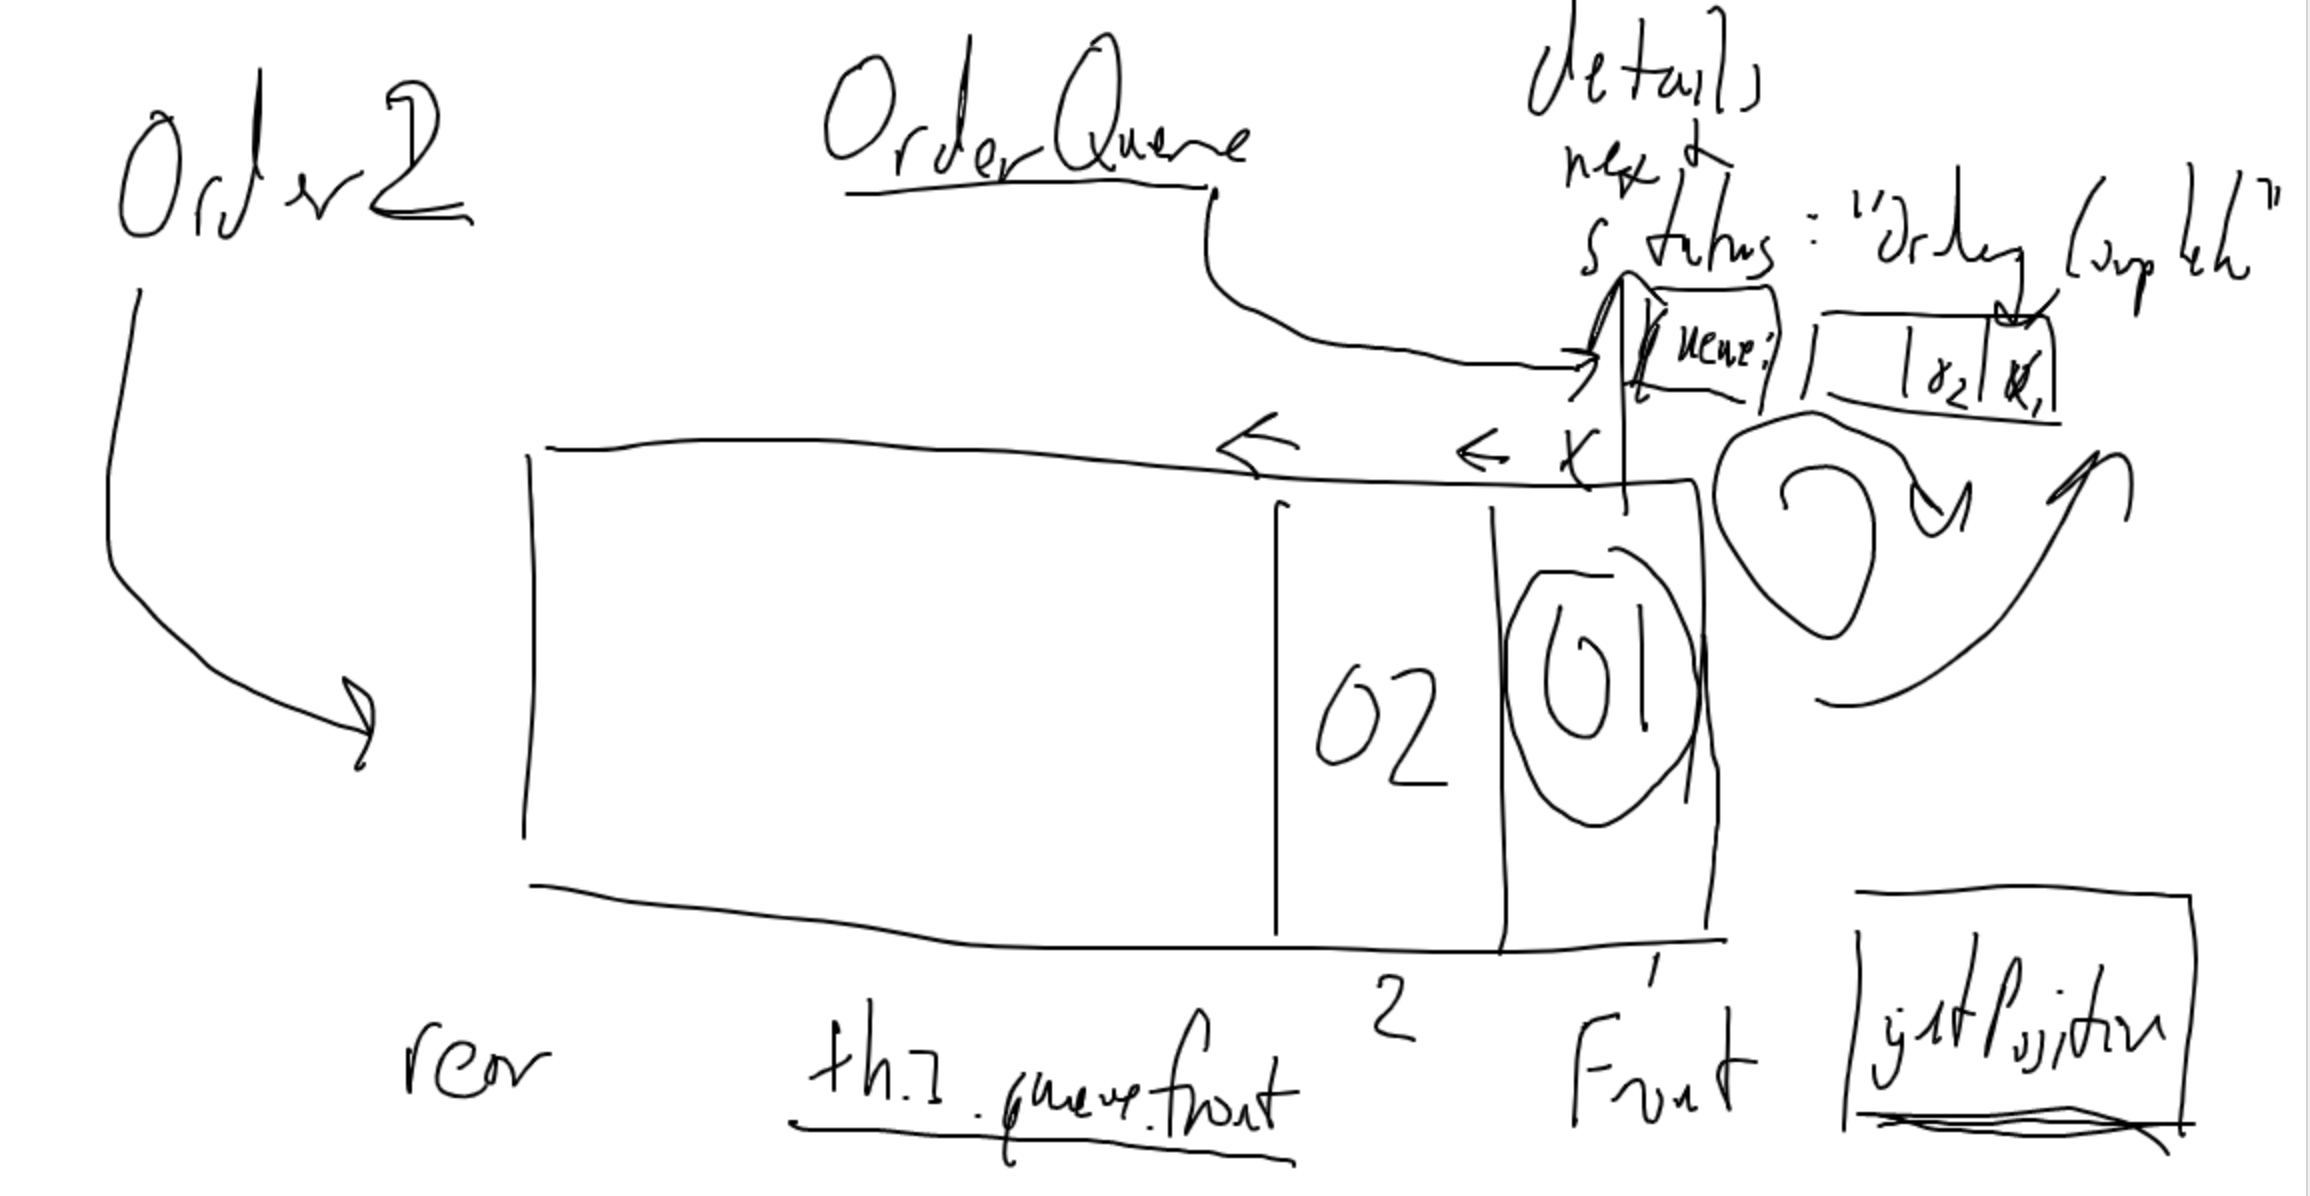 Order 2
OrderQueue
details
next
status : "Order Complete"
queue:
O2 O1
X
O2 O1
2 1
rear
this.queue.front
Front
getPosition